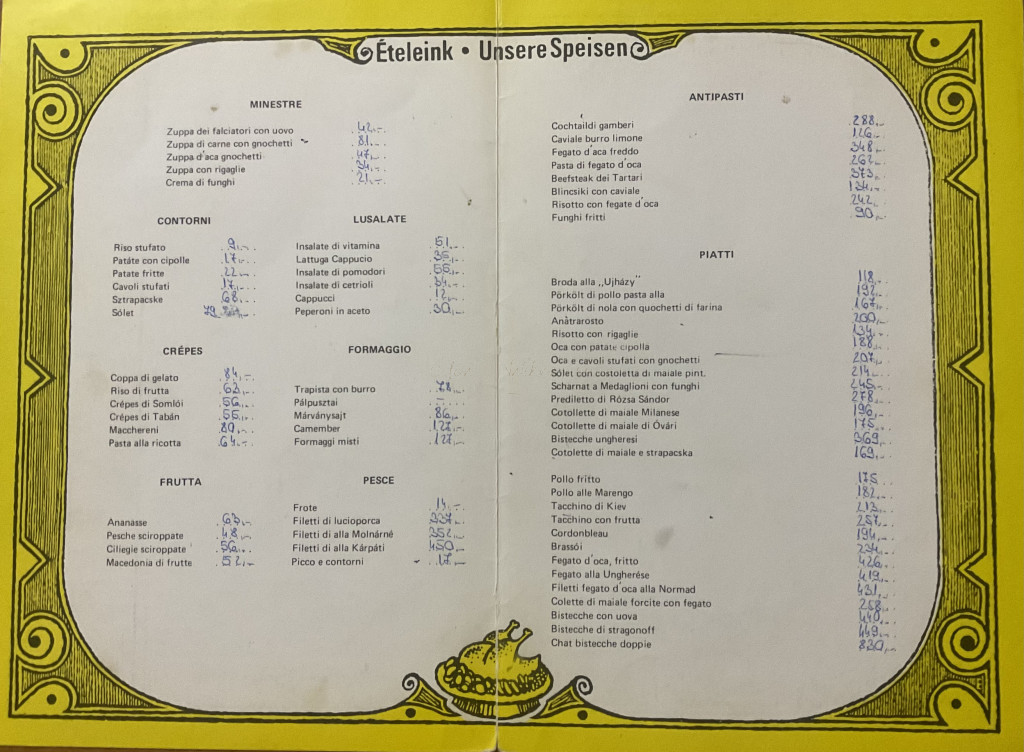 Ételeink • Unsere Speisen
MINESTRE
Zuppa dei falciatori con uovo 42,-
Zuppa di carne con gnochetti 81,-
Zuppa d'aca gnochetti 47,-
Zuppa con rigaglie 34,-
Crema di funghi 21,-
CONTORNI
Riso stufato 9,-
Patáte con cipolle 17,-
Patate fritte 22,-
Cavoli stufati 17,-
Sztrapacske 68,-
Sólet 79
LUSALATE
Insalate di vitamina 51,-
Lattuga Cappucio 35,-
Insalate di pomodori 55,-
Insalate di cetrioli 34,-
Cappucci 12,-
Peperoni in aceto 30,-
CRÉPES
Coppa di gelato 84,-
Riso di frutta 63,-
Crépes di Somlói 56,-
Crépes di Tabán 55,-
Macchereni 80,-
Pasta alla ricotta 64,-
FORMAGGIO
Trapista con burro 78,-
Pálpusztai
Márványsajt 86,-
Camember 127,-
Formaggi misti 127,-
FRUTTA
Ananasse 63,-
Pesche sciroppate 48,-
Ciliegie sciroppate 56,-
Macedonia di frutte 52,-
PESCE
Frote 14,-
Filetti di lucioporca 337,-
Filetti di alla Molnárné 352,-
Filetti di alla Kárpáti 450,-
Picco e contorni 17,-
ANTIPASTI
Cochtaildi gamberi 288,-
Caviale burro limone 126,-
Fegato d'aca freddo 348,-
Pasta di fegato d'oca 262,-
Beefsteak dei Tartari 373,-
Blincsiki con caviale 134,-
Risotto con fegate d'oca 242,-
Funghi fritti 90,-
PIATTI
Broda alla „Ujházy" 118,-
Pörkölt di pollo pasta alla 192,-
Pörkölt di nola con quochetti di farina 167,-
Anátrarosto 200,-
Risotto con rigaglie 134,-
Oca con patate cipolla 188,-
Oca e cavoli stufati con gnochetti 207,-
Sólet con costoletta di maiale pint. 214,-
Scharnat a Medaglioni con funghi 245,-
Prediletto di Rózsa Sándor 278,-
Cotollette di maiale Milanese 196,-
Cotollette di maiale di Óvári 175,-
Bistecche ungheresi 369,-
Cotolette di maiale e strapacska 169,-
Pollo fritto 175
Pollo alle Marengo 182,-
Tacchino di Kiev 213,-
Tacchino con frutta 257,-
Cordonbleau 194,-
Brassói 234,-
Fegato d'oca, fritto 426,-
Fegato alla Ungherése 419,-
Filetti fegato d'oca alla Normad 431,-
Colette di maiale forcite con fegato 258,-
Bistecche con uova 440,-
Bistecche di stragonoff 449,-
Chat bistecche doppie 830,-